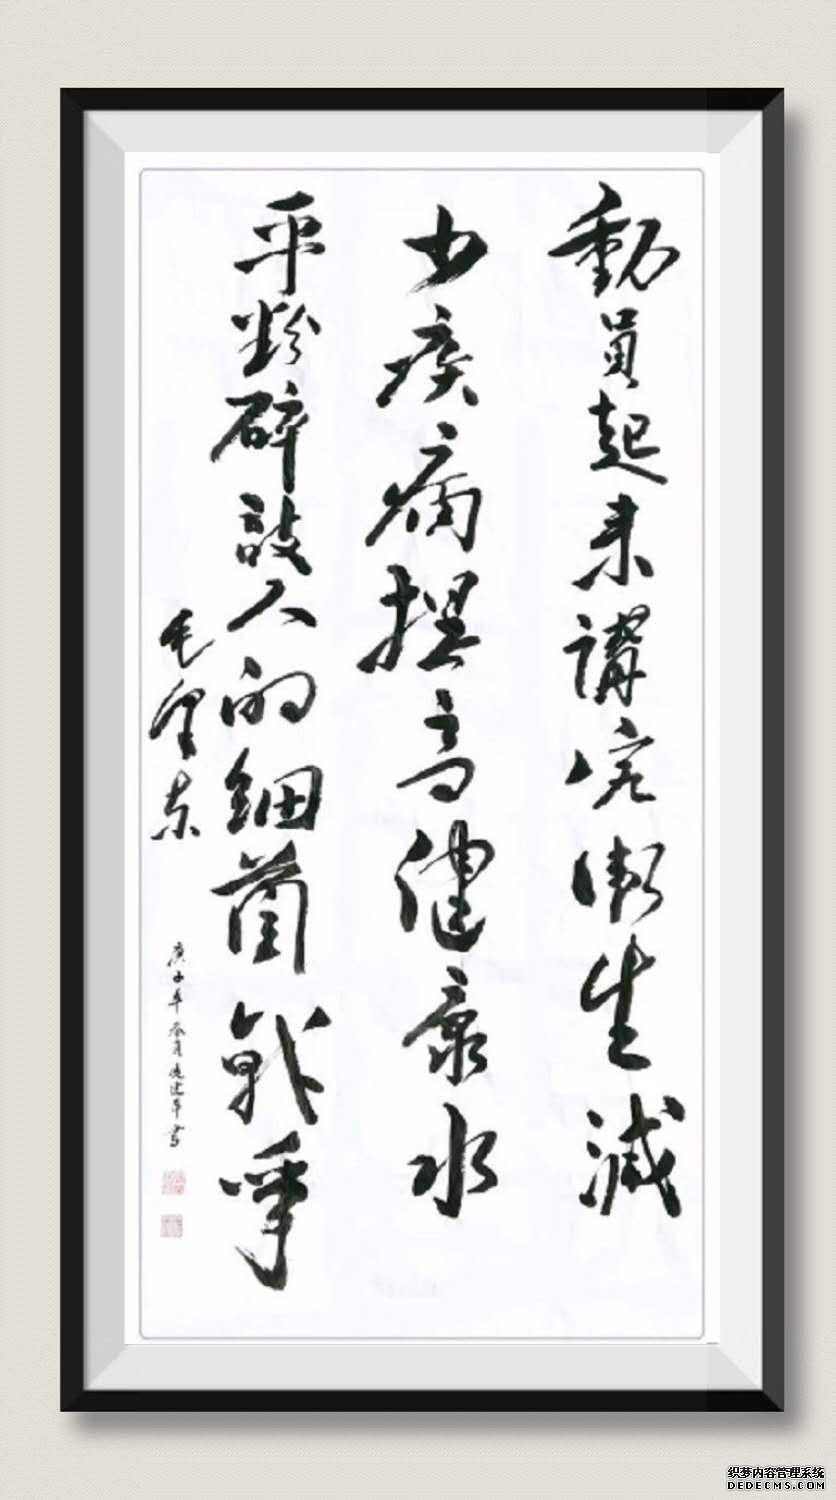 動員起来講究衛生減
少疾病提高健康水
平粉碎敌人的細菌戰爭
毛澤东
庚子年春月建平書
织梦内容管理系统
DEDECMS.COM